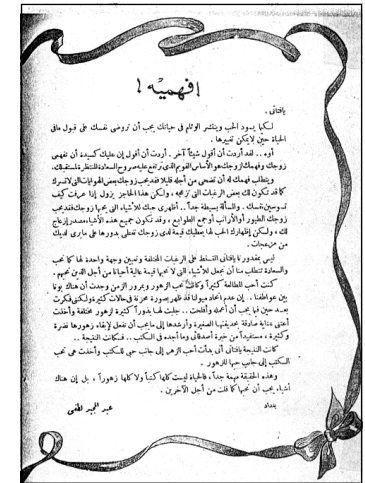 إفهميه !
يافتاتي .
لكيما يسود الحب وينتشر الوئام في حياتك يجب أن تروضي نفسك على قبول مافي
الحياة حين لايمكن تغييرها .
أوه .. لقد أردت أن أقول شيئاً آخر . أردت أن أقول إن عليك كسيدة أن تفهمي
زوجك وفهمك لزوجك هو الأساس القويم الذي ترتفع عليه صروح السعادة المنتظرة لمستقبلك.
ويتطلب فهمك له أن تضحي من أجله قليلا فقد يحب زوجك بعض الهوايات التي لاتسرك
كما قد تكون لك بعض الرغبات التي تزعجه ، ولكن هذا الحاجز يزول إذا عرفت كيف
تسوسين نفسك . والمسألة بسيطة جداً .. أظهري حبك للأشياء التي يحبها زوجك فقد يحب
زوجك الطيور أو الأرانب أو جمع الطوابع ، وقد تكون جميع هذه الأشياء مصدر إزعاج
لك ، ولكن إظهارك الحب لها يعطيك قيمة لدى زوجك تغطي بدورها على مايرى لديك
من مزعجات .
ليس بمقدور نا يافتاتي التسلط على الرغبات المختلفة وتعيين وجهة واحدة لها كما نحب
والسعادة تتطلب منا أن نجعل للأشياء التي لا نحبها قيمة عالية أحيانا من أجل الذين نحبهم .
كنت أحب المطالعة كثيراً وكانت تحب الزهور وبمرور الزمن وجدت أن هناك بونا
بين عواطفنا .. إن عدم اتحاد ميولنا قد ظهر بصورة محزنة في حالات كثيرة ولكني فكرت
بعد حين فيما يجب أن أعمله وأفلحت .. جلبت لها بذوراً كثيرة لزهور مختلفة وأخذت
أعنى عناية صادقة بحديقتها الصغيرة وأرشدها إلى مايجب أن تفعل لإبقاء زهورها نضرة
وكثيرة ، مستفيداً من خبرة أصدقائي وما أجده في الكتب .. فكانت النتيجة ..
كانت النتيجة يافتاتي أني بدأت أحب الزهر إلى جانب حبي للكتب وأخذت هي تحب
الكتب إلى جانب حبها للزهور .
وهذه الحقيقة مهمة جداً ، فالحياة ليست كلها كتباً ولا كلها زهوراً ، بل إن هناك
أشياء يجب أن نحبها كما قلت من أجل الآخرين .
بغداد
عبد المجيد لطفي